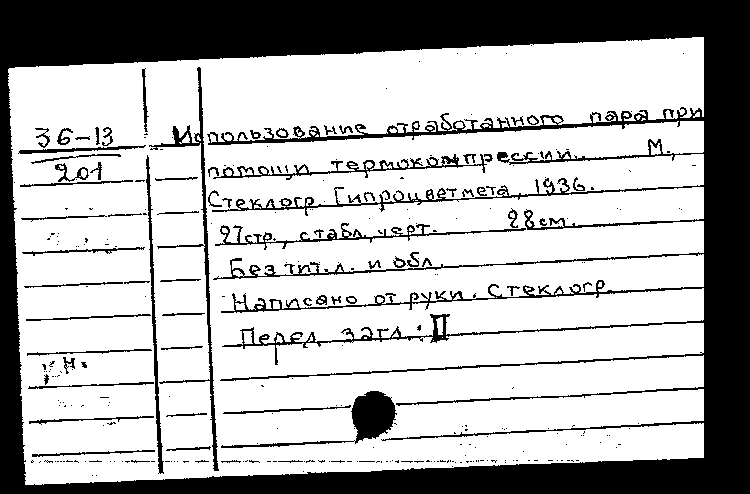 36-13
201
Использование отработанного пара при
помощи термокомпрессии. М.,
Стеклогр. Гипроцветмета, 1936.
27стр., с табл., черт. 28см.
Без тит.л. и обл.
Написано от руки. Стеклогр.
Перед загл.: II
кн.